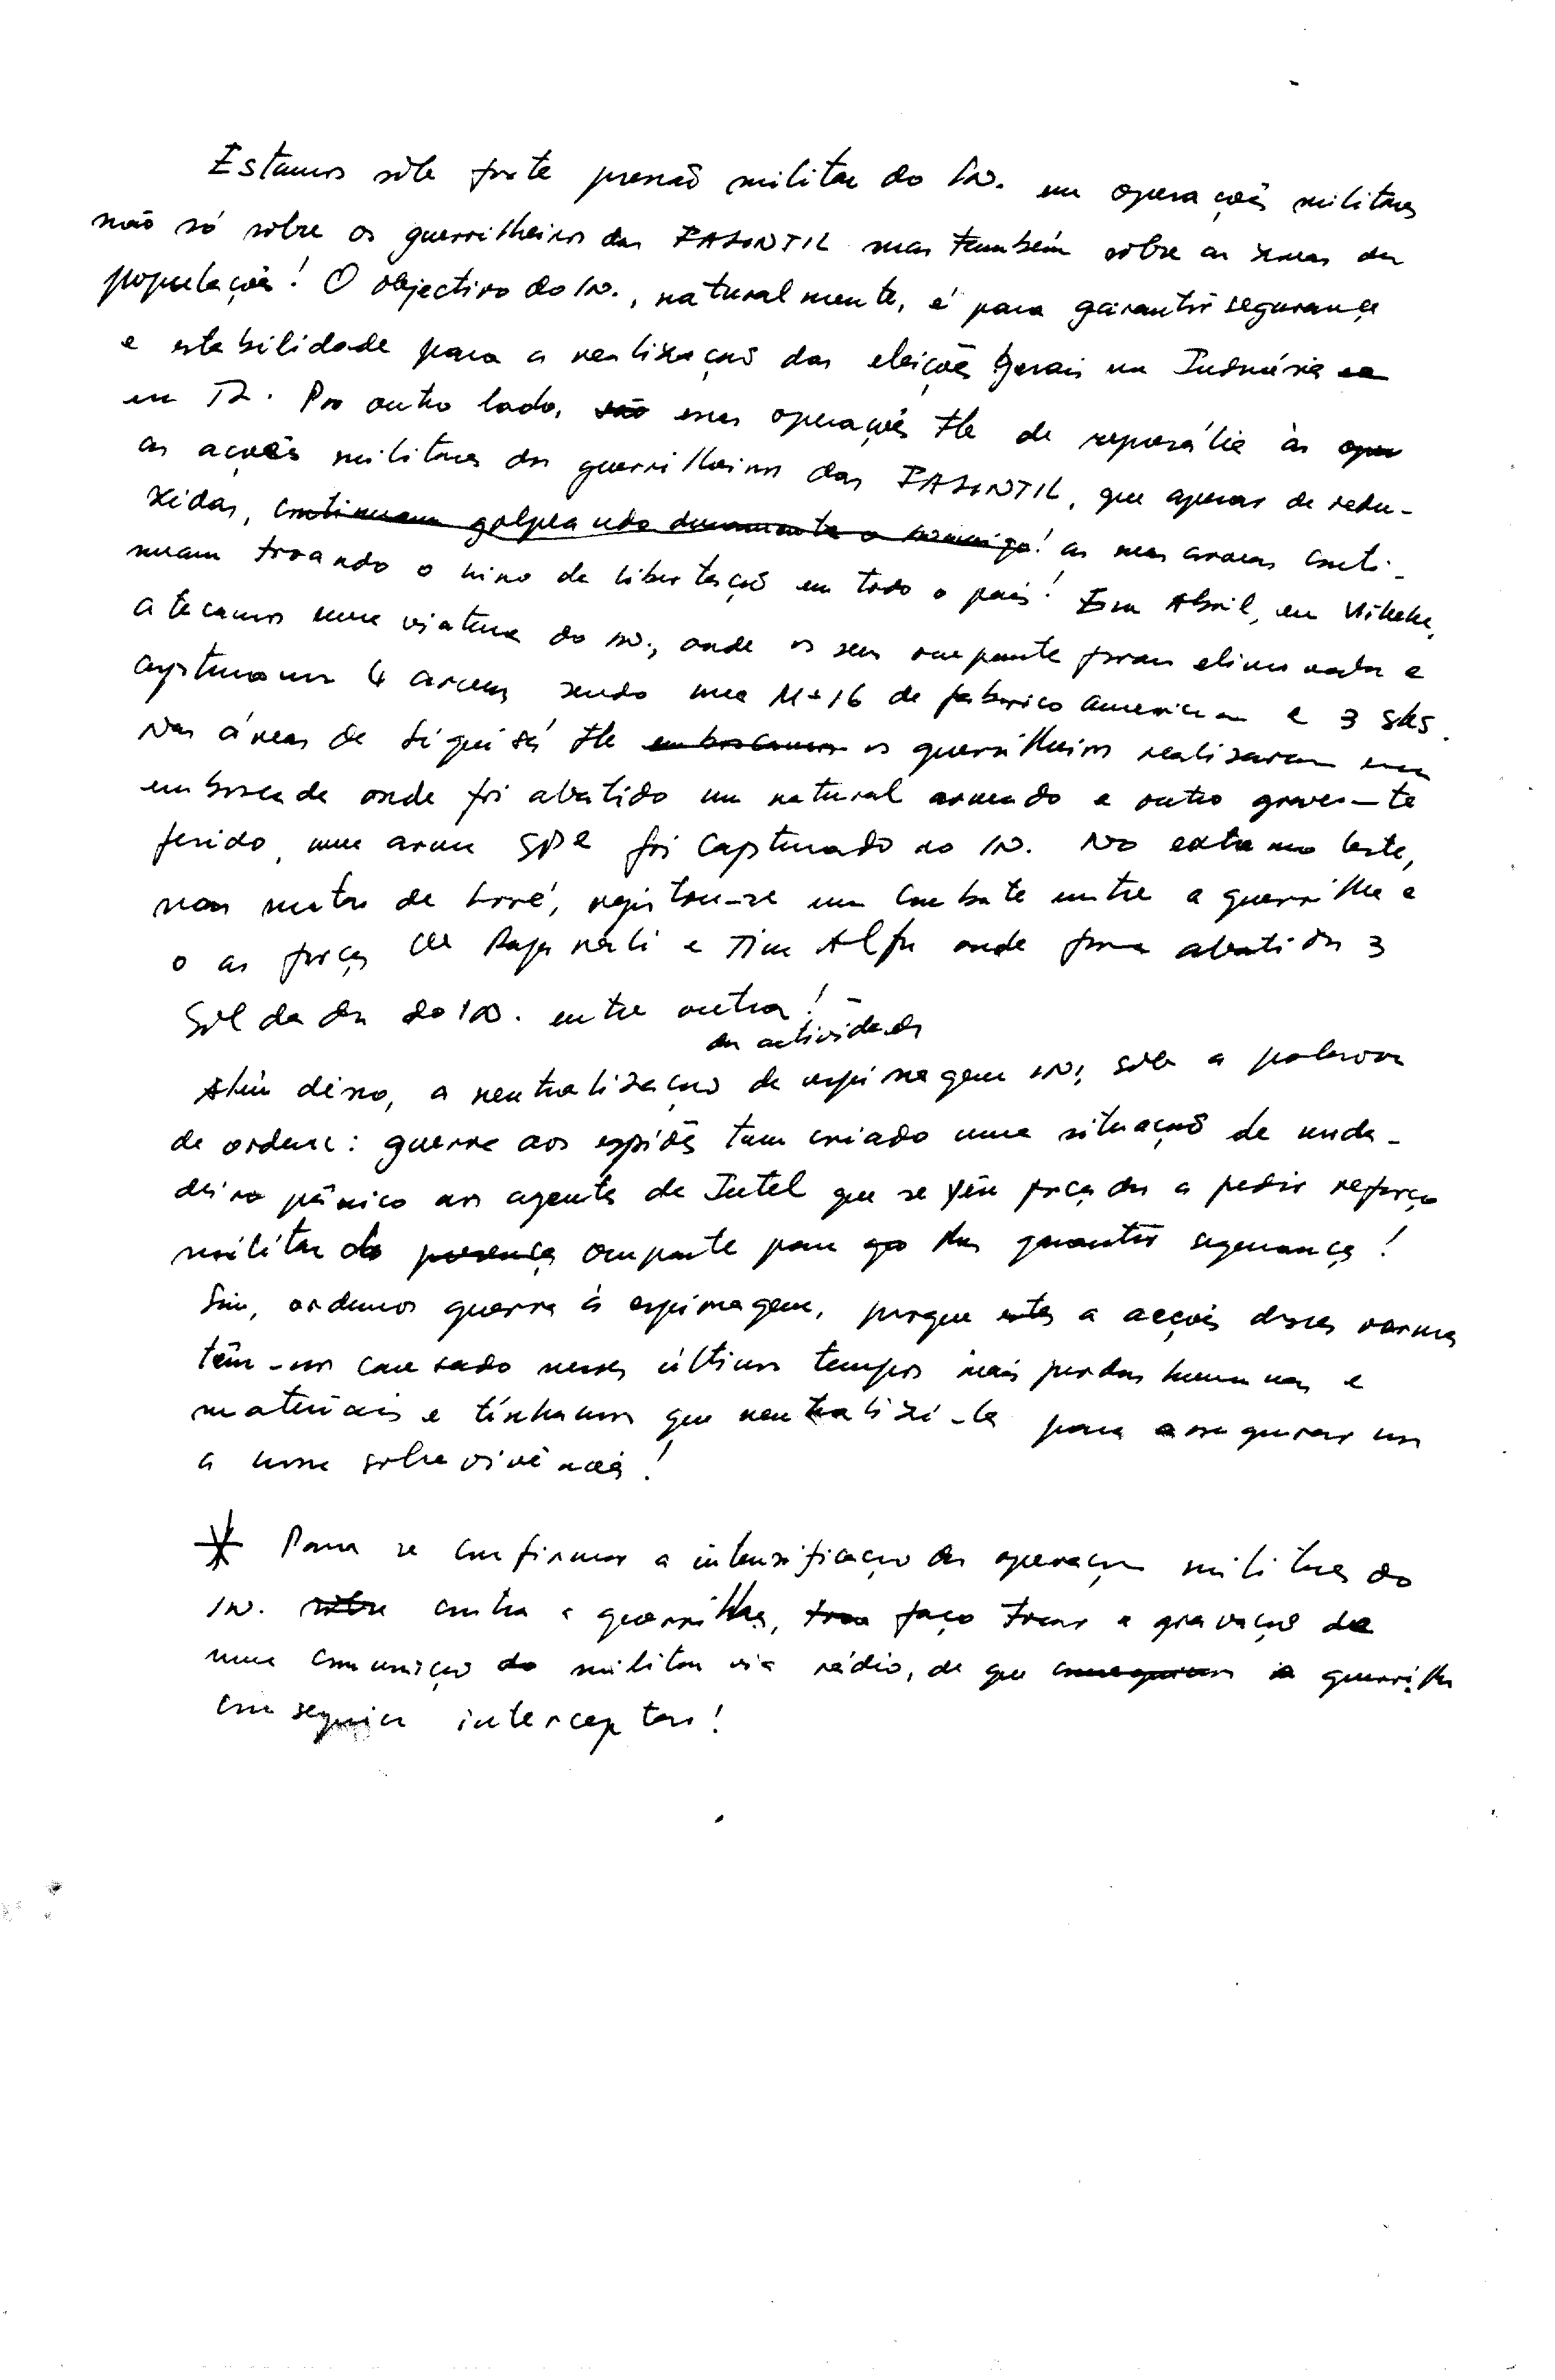 Estamos sôb forte pressaõ militar do In. em operações militares
não só sobre os guerrilheiros das FALINTIL mas também sôbre as zonas da
populaçoẽs! O objectivo do IN., naturalmente, é para garantir segurança
e estabilidade para a realizaçaõ das eleições gerais na Indonésia ea
em TL. Por outro lado, são essas operações tb de represália às oper
as acoẽs militares dos guerrilheiros das FALINTIL, que apesar de redu-
zidas, continuam golpeando duramente o inimigo! as suas armas conti-
nuam troando o hino da libertaçaõ em todo o país! Em Abril, em Vikeke,
atacamos uma viatura do IN., onde os seus ocupante foram eliminados e
capturamos 4 armas sendo uma M-16 de fabrico americano e 3 SKS.
Nas áreas de Liquisá tb emboscamos os guerrilheiros realizaram uma
emboscada onde foi abatido um natural armado e outro gravemente
ferido, uma arma SP2 foi capturado ao IN. No extremo leste,
nas matas de Loré, registou-se um combate entre a guerrilha e
o as forças de Rajawali e Tim Alfa onde foram abatidos 3
soldados do IN. entre outros!
das actividades
Além disso, a neutralizaçao de espionagem IN, sob a palavra
de ordem: guerra aos espiões tem criado uma situaçaõ de verda-
deiro pânico aos agentes da Intel que se vêm forçados a pedir reforço
militar do presença ocupante para go lhes garantir segurança!
Sim, ordenos guerra à espionagem, porque estes a acçoẽs desses vermes
têm-nos causado nesses últimos tempos mais perdas humanas e
materiais e tínhamos que neutralizá-la para assegurar-nos
a nossa sobrevivência!
* Para se confirmar a intensificaçao das operaçoes militares do
IN. sôbre contra a guerrilha, troa faço tocar a gravaçaõ de
uma comunicaçao do militar via rádio, de que conseguiram a guerrilha
conseguiu interceptar!